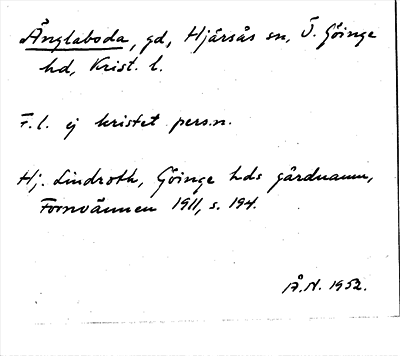 Änglaboda, gd, Hjärsås sn, Ö. Göinge
hd, Krist. l.
F.l. ej kristet persn.
Hj. Lindroth, Göinge hds gårdnamn,
Fornvännen 1911, s. 194.
Å.N. 1952.